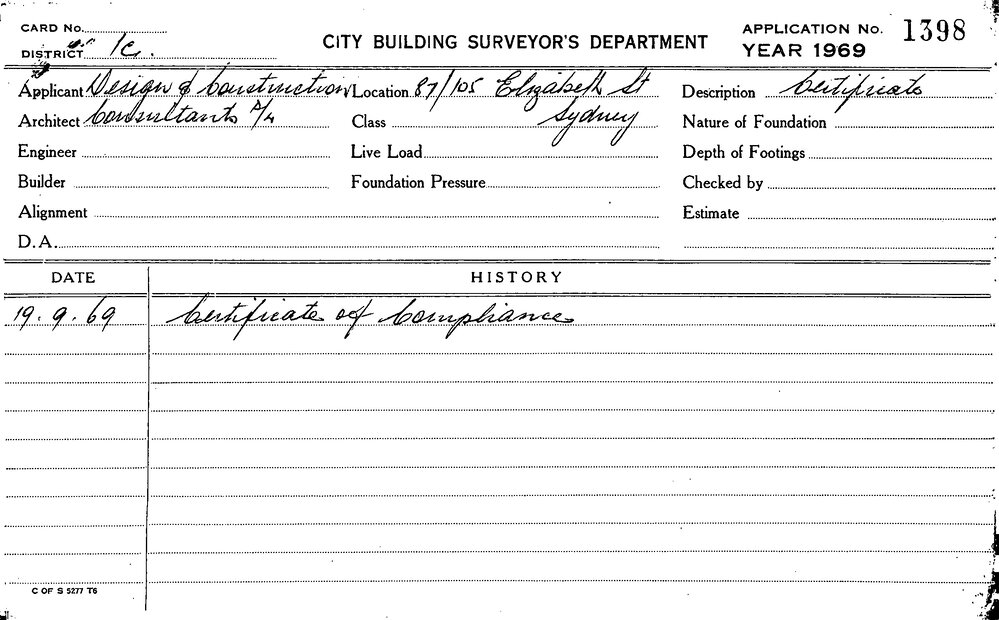 CARD No.
DISTRICT 1c.
CITY BUILDING SURVEYOR'S DEPARTMENT
APPLICATION No. 1398
YEAR 1969
Applicant Design & Construction Location 87/105 Elizabeth St Description Certificate
Architect Consultants P/L Class Sydney Nature of Foundation
Engineer Live Load Depth of Footings
Builder Foundation Pressure Checked by
Alignment Estimate
D.A.
DATE HISTORY
19.9.69 Certificate of Compliance
C OF S 5277 T6